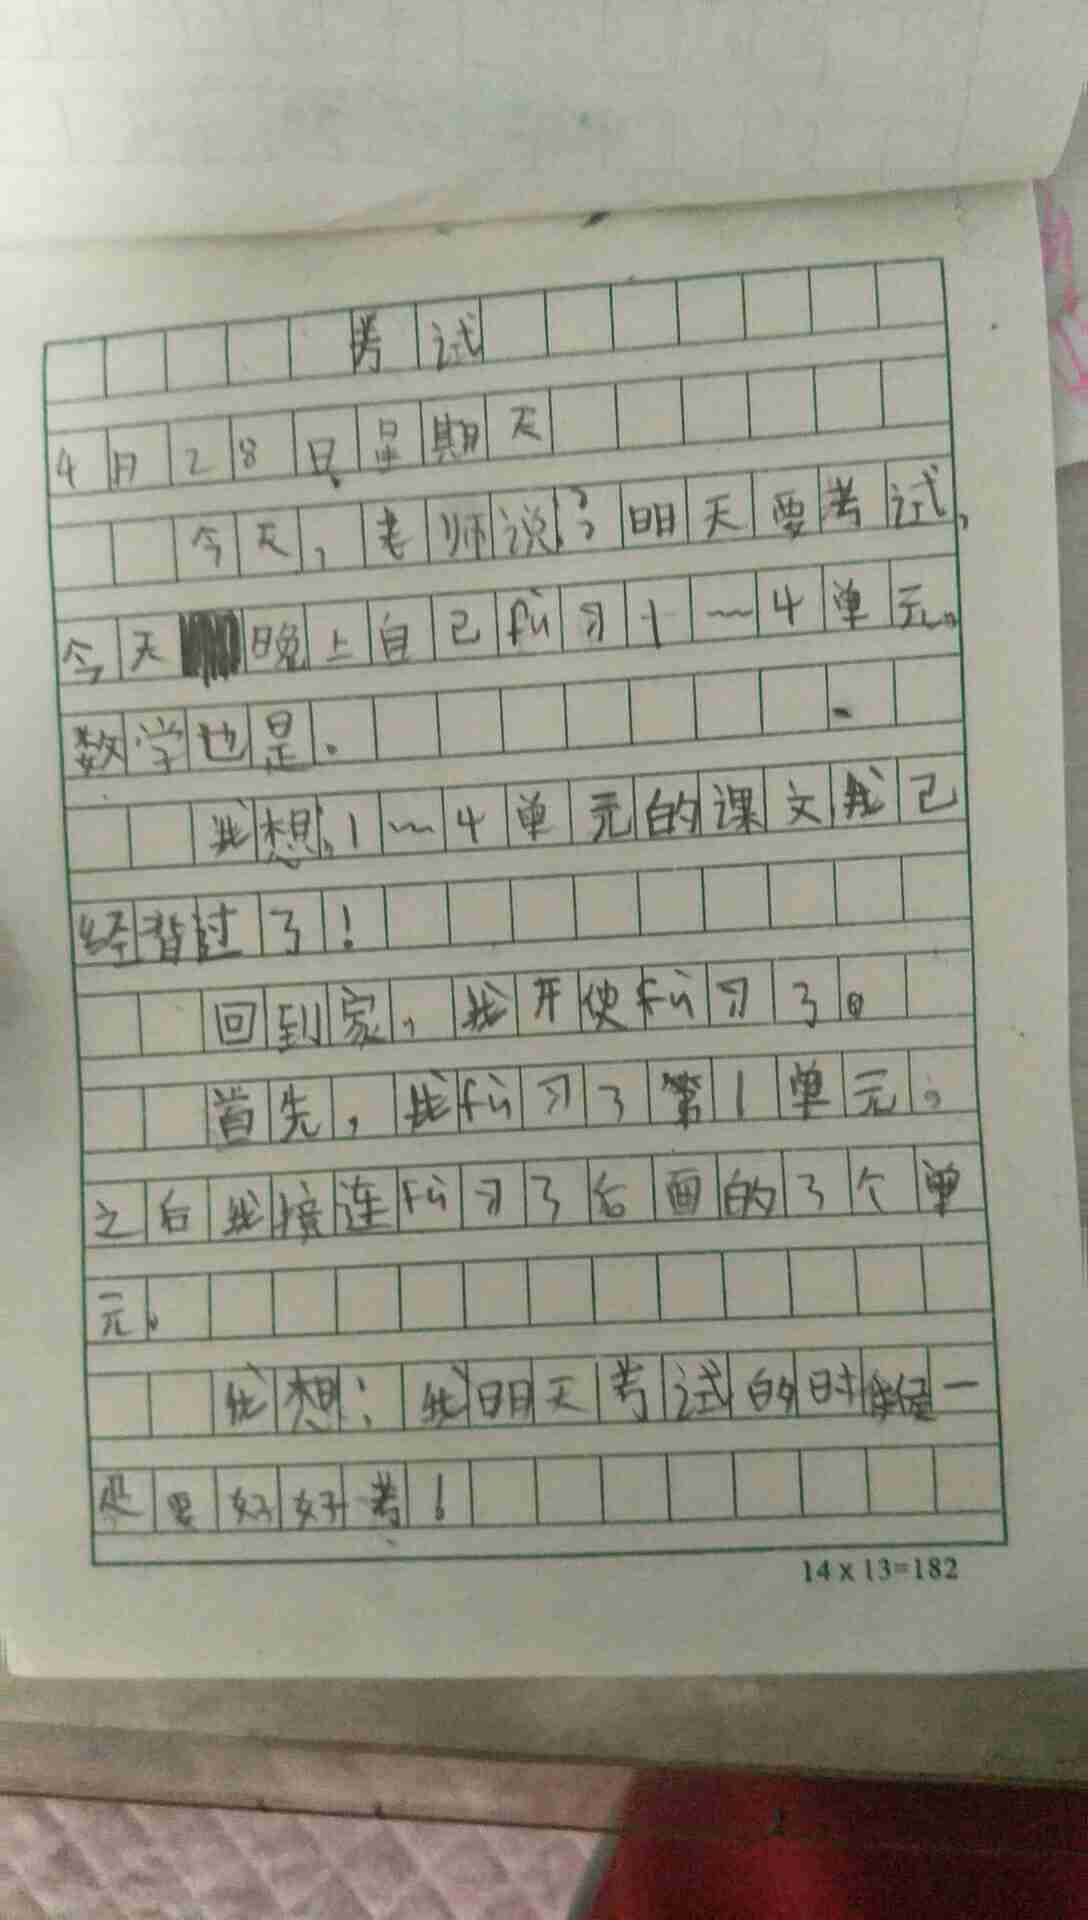 考试
4月28日星期天
今天,老师说:明天要考试,
今天晚上自己fù习1~4单元。
数学也是.
我想:1~4单元的课文我已
经背过了!
回到家,我开使fù习了。
首先,我fù习了第1单元。
之后我接连fù习了后面的3个单
元。
我想:我明天考试的时候一
定要好好考!
14×13=182